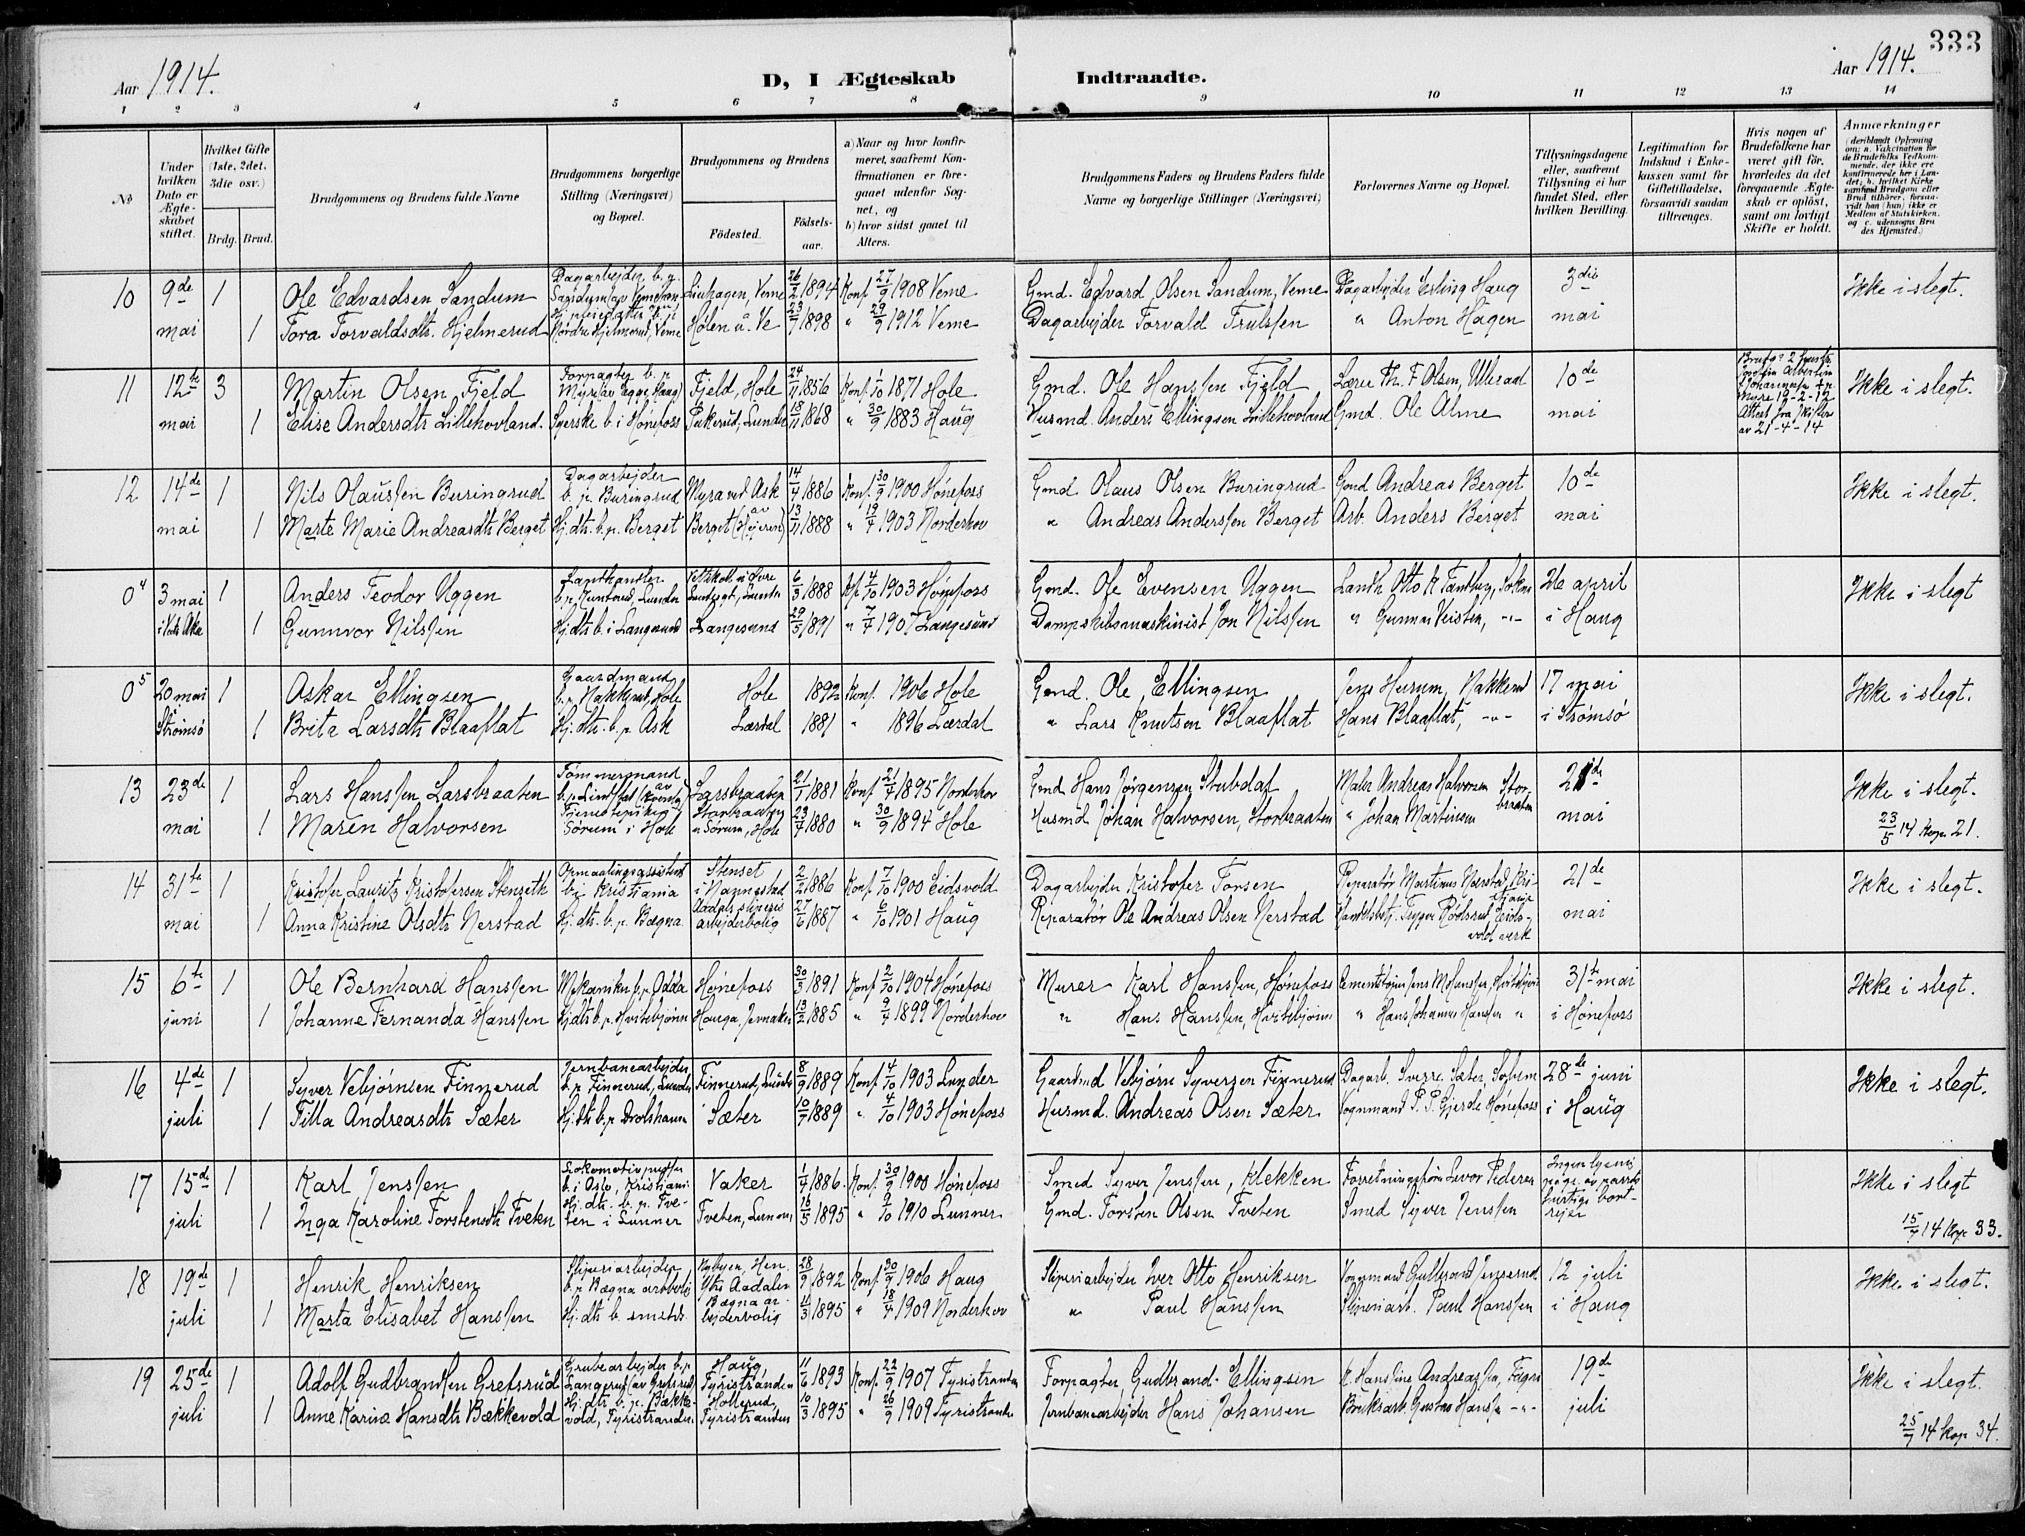 333
Aar 1914.
D, I Ægteskab Indtraadte.
Aar 1914.
1 2 3 4 5 6 7 8 9 10 11 12 13 14
№
Under hvilken Dato er Ægteskabet stiftet.
Hvilket Gifte (1ste, 2det, 3die osv.)
Brdg. Brud.
Brudgommens og Brudens fulde Navne
Brudgommens borgerlige Stilling (Næringsvei) og Bopæl.
Brudgommens og Brudens
Födested. Födselsaar.
a) Naar og hvor konfirmeret, saafremt Konfirmationen er foregaaet udenfor Sognet, og
b) hvor sidst gaaet til Alters.
Brudgommens Faders og Brudens Faders fulde Navne og borgerlige Stillinger (Næringsvei)
Forlovernes Navne og Bopæl.
Tillysningsdagene eller, saafremt Tillysning ei har fundet Sted, efter hvilken Bevilling.
Legitimation for Indskud i Enkekassen samt for Giftetilladelse, forsaavidt saadan tiltrænges.
Hvis nogen af Brudefolkene har været gift för, hvorledes da det foregaaende Ægteskab er oplöst, samt om lovligt Skifte er holdt.
Anmærkninger
(deriblandt Oplysning om: a. Vakcination for de Brudefolks Vedkommende, der ikke ere konfirmerede her i Landet; b. hvilket Kirkesamfund Brudgom eller Brud tilhörer, forsaavidt han (hun) ikke er Medlem af Statskirken, og c. udensogns Brudes Hjemsted.)
10 9de 1 Ole Edvardsen Sandum Dagarbejder b. p. Viuhagen, Veme 26/2 1894 Konf 27/9 1908 Veme Gmd. Edvard Olsen Sandum, Veme Dagarbejder Erling Haug 3die Ikke i slegt.
mai 1 Tora Torvaldsdtr. Hjelmerud Nordre Hjelmerud, Veme Hølen u. Ve 23/7 1898 " 29/9 1912 Veme Dagarbejder Torvald Trulssen " Anton Hagen mai
11 12te 3 Martin Olsen Fjeld Forpagter b. p. Myre (av Egge, Haug) Fjeld, Hole 24/11 1856 Konf. 1/10 1871 Hole Gmd. Ole Hanssen Fjeld Lærer Th. F Olsen, Ulleraal 10de Ikke i slegt.
mai 1 Elise Andersdtr Lillehovland. Syerske b. i Hønefoss Lunder 18/11 1868 " 30/9 1883 Haug Husmd. Anders Ellingsen Lillehovland Gmd. Ole Alme mai Myre 19-2-12 av 21-4-14
12 14de 1 Nils Olaussen Buringrud Dagarbejder b. p. Buringrud Myra ved Ask 14/4 1886 Konf. 30/9 1900 Hønefoss Gmd Olaus Olsen Buringrud Gmd Andreas Berget 10de Ikke i slegt.
mai 1 Marte Marie Andreasdtr Berget Hj. dtr. b. p. Berget Berget av (Hejren) 13/11 1888 " 19/4 1903 Norderhov " Andreas Anderssen Berget Arb. Anders Berget mai
0 4 3 mai 1 Anders Teodor Uggen Landhandler 6/3 1888 Kf 4/10 1903 Hønefoss Gmd. Ole Evensen Uggen Landh Otto K Tandberg, Soknen 26 april Ikke i slegt
1 Gunnvor Nilssen Hj. dtr b. i Langesund Langesund 29/5 1891 " 7/4 1907 Langesund Dampskibsmaskinist Jon Nilssen " Gunnar Veisten, -"- i Haug
0 5 20 mai 1 Askar Ellingsen Gaardmand b. p. Nakkerud, Hole Hole 1892 Konf. 1906 Hole Gmd. Ole Ellingsen Jens Hurum, Nakkerud 17 mai Ikke i slegt.
Strømsø 1 Brita Larsdtr Blaaflat Hj. dtr. b. p. Ask Lærdal 1881 " 1896 Lærdal " Lars Knutsen Blaaflat Hans Blaaflat, -"- i Strømsø
13 23de 1 Lars Hanssen Larsbraaten Tømmermand Larsbraaten 21/1 1881 Konf 21/4 1895 Norderhov Gmd Hans Jørgensen Stubdal Maler Andreas Halvorsen Storbraaten 21de Ikke i slegt.
mai 1 Maren Halvorsen Tjenestepike Sørum i Hole Storbraaten u Sørum, Hole 23/7 1880 " 30/9 1894 Hole Husmd Johan Halvorsen, Storbraaten " Johan Martinsen mai 23/5 14 kop. 21.
14 31te 1 Kristofer Lauritz Kristofersen Stenseth Opmaalingsassistent b. i Kristiania Stenset i Nannestad 2/2 1886 Konf 7/10 1900 Eidsvold Dagarbejder Kristofer Torsen Reparatør Martinus Nerstad, Kristiania 21de Ikke i slegt.
mai 1 Anna Kristine Olsdtr Nerstad Hj. dtr. b. p. Bægna Aadals sliperis arbejderbolig 27/6 1887 " 6/10 1901 Haug Reparatør Ole Andreas Olsen Nerstad Eidsvold verk mai
15 6te 1 Ole Bernhard Hanssen Mekaniker b. p. Odda Hønefoss 30/3 1891 Konf 2/10 1904 Hønefoss Murer Karl Hanssen, Hønefoss 31te mai Ikke i slegt.
juni 1 Johanne Fernanda Hanssen Hj. dtr b. p. Hvitebjørn Hauga. Jevnaker 13/2 1885 " 9/4 1899 Norderhov " Hans Hanssen, Hvitebjørn " Hans Johannes Hanssen " i Hønefoss
16 4de 1 Syver Vebjørnsen Finnerud Jernbanearbejder b. p. Finnerud, Lunder Finnerud, Lunder 8/9 1889 Konf. 4/10 1903 Lunder Gaardmd Vebjørn Syversen Finnerud Dagarb. Sverre Sæter 28de juni Ikke i slegt.
juli 1 Tilla Andreasdtr Sæter Hj. dtr b. p. Drolshaum Sæter 10/7 1889 " 4/10 1903 Hønefoss Husmd. Andreas Olsen Sæter Vognmand P. P. Gjerde Hønefoss i Haug
17 15de 1 Karl Jenssen Lokomotivpusser b. i Oslo, Kristiania Vaker 1/4 1886. Konf. 30/9 1900 Hønefoss Smed Syver Jenssen, Klekken Forretningsfører Levor Pedersen Ingen lysning Ikke i slegt
juli 1 Inga Karoline Torstensdtr Tveten Hj. dtr. b. p. Tveten i Lunner Tveten, Lunner 16/5 1895 " 9/10 1910 Lunner Gmd. Torsten Olsen Tveten Smed Syver Jenssen hurtige bortrejse 15/7 14 kop 33.
18 19de 1 Henrik Henriksen Sliperiarbejder b. p Bægna arbbolig Nybyen, Hen. Ytre Aadalen 28/9 1892 Konf 30/9 1906 Haug Sliperiarbejder Iver Otto Henriksen Vognmand Gulbrand 12 juli Ikke i slegt.
juli 1 Marta Elisabet Hanssen Hj. dtr b. smstds. Bægna arbejderbolig 11/3 1895 " 18/4 1909 Norderhov " Paul Hanssen Sliperiarb. Paul Hanssen i Haug
19 25de 1 Adolf Gudbrandsen Grefsrud Grubearbejder b. p Haug Tyristranden 11/6 1893 Konf. 22/9 1907 Tyristranden Forpagter Gudbrand Ellingsen 19de Ikke i slegt.
juli 1 Anne Karine Hansdtr Bækkevold Hj. dtr. b. p. Bækkevold, Tyristranden Hollerud, Tyristranden 10/3 1895 " 26/9 1909 Tyristranden Jernbanearbejder Hans Johansen Bruksarb. Gustav Hanssen -"- juli 25/7 14 kop 34.